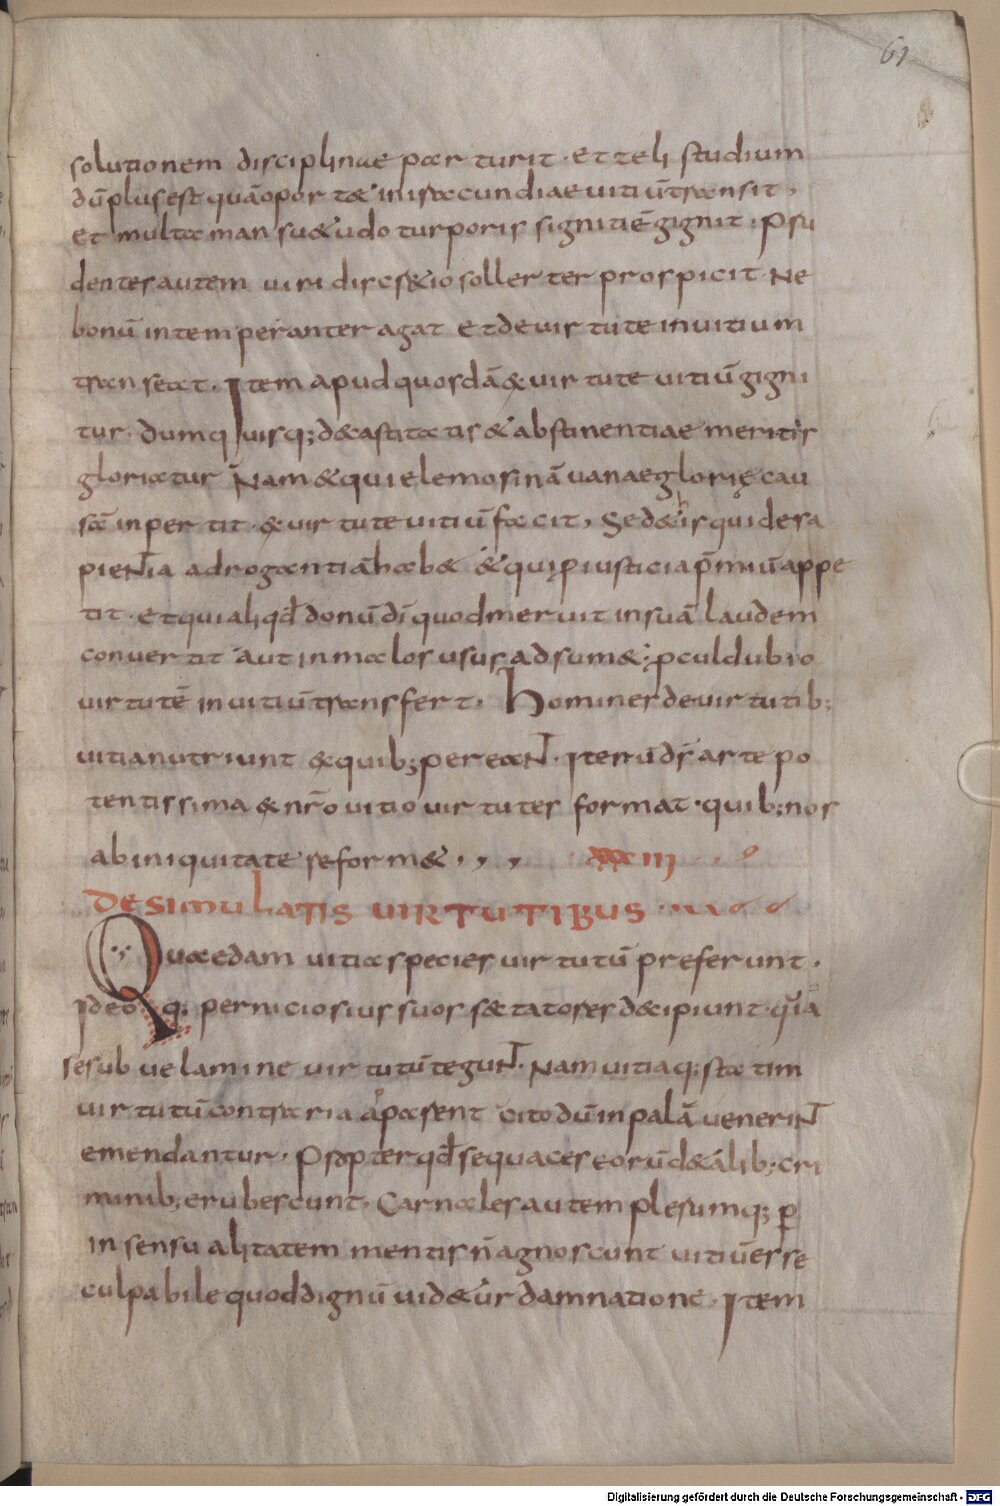 61
solutionem disciplinae parturit · et zeli studium
dū plus est quā oportet in iracundiae uitiū transit,
et multa mansuetudo turporis signitiē gignit · Psu
dentes autem uiri discretio sollerter prospicit · Ne
bonū intemperanter agat et de uirtute in uitium
transeat. Item apud quosdā & uirtute uitiū gigni
tur · dum quisq; de castitatis & abstinentiae meritis
gloriatur Nam & qui elemosinā uanae glorię cau
sā inpertit · & uirtute uitiū facit, Sed & is qui de sa
pientia adrogantiā habet & qui p iusticia p̄miū appe
tit · et qui aliqd̄ donū dī quod meruit in suā laudem
conuertit aut in malos usus adsumet; pculdubio
uirtutē in uitiū transfert. Homines de uirtutib;
uitia nutriunt & quib; pereant. Iterū ds̄ arte po
tentissima & nr̄o uitio uirtutes format · quib; nos
ab iniquitate reformet , , , xxxiii
DE SIMULATIS UIRTUTIBUS
Quaedam uitia species uirtutū preferunt.
Ideoq; perniciosius suos sectatores decipiunt · quia
se sub uelamine uirtutū tegunt. Nam uitia q; statim
uirtutū contraria apparent cito dū in palā uenerint
emendantur, Propter qd̄ sequaces eorū de talib; cri
minib; erubescunt, Carnales autem plerumq; p
insensualitatem mentis n̄ agnoscunt uitiū esse
culpabile quod dignū uidetur damnatione. Item
Digitalisierung gefördert durch die Deutsche Forschungsgemeinschaft - DFG